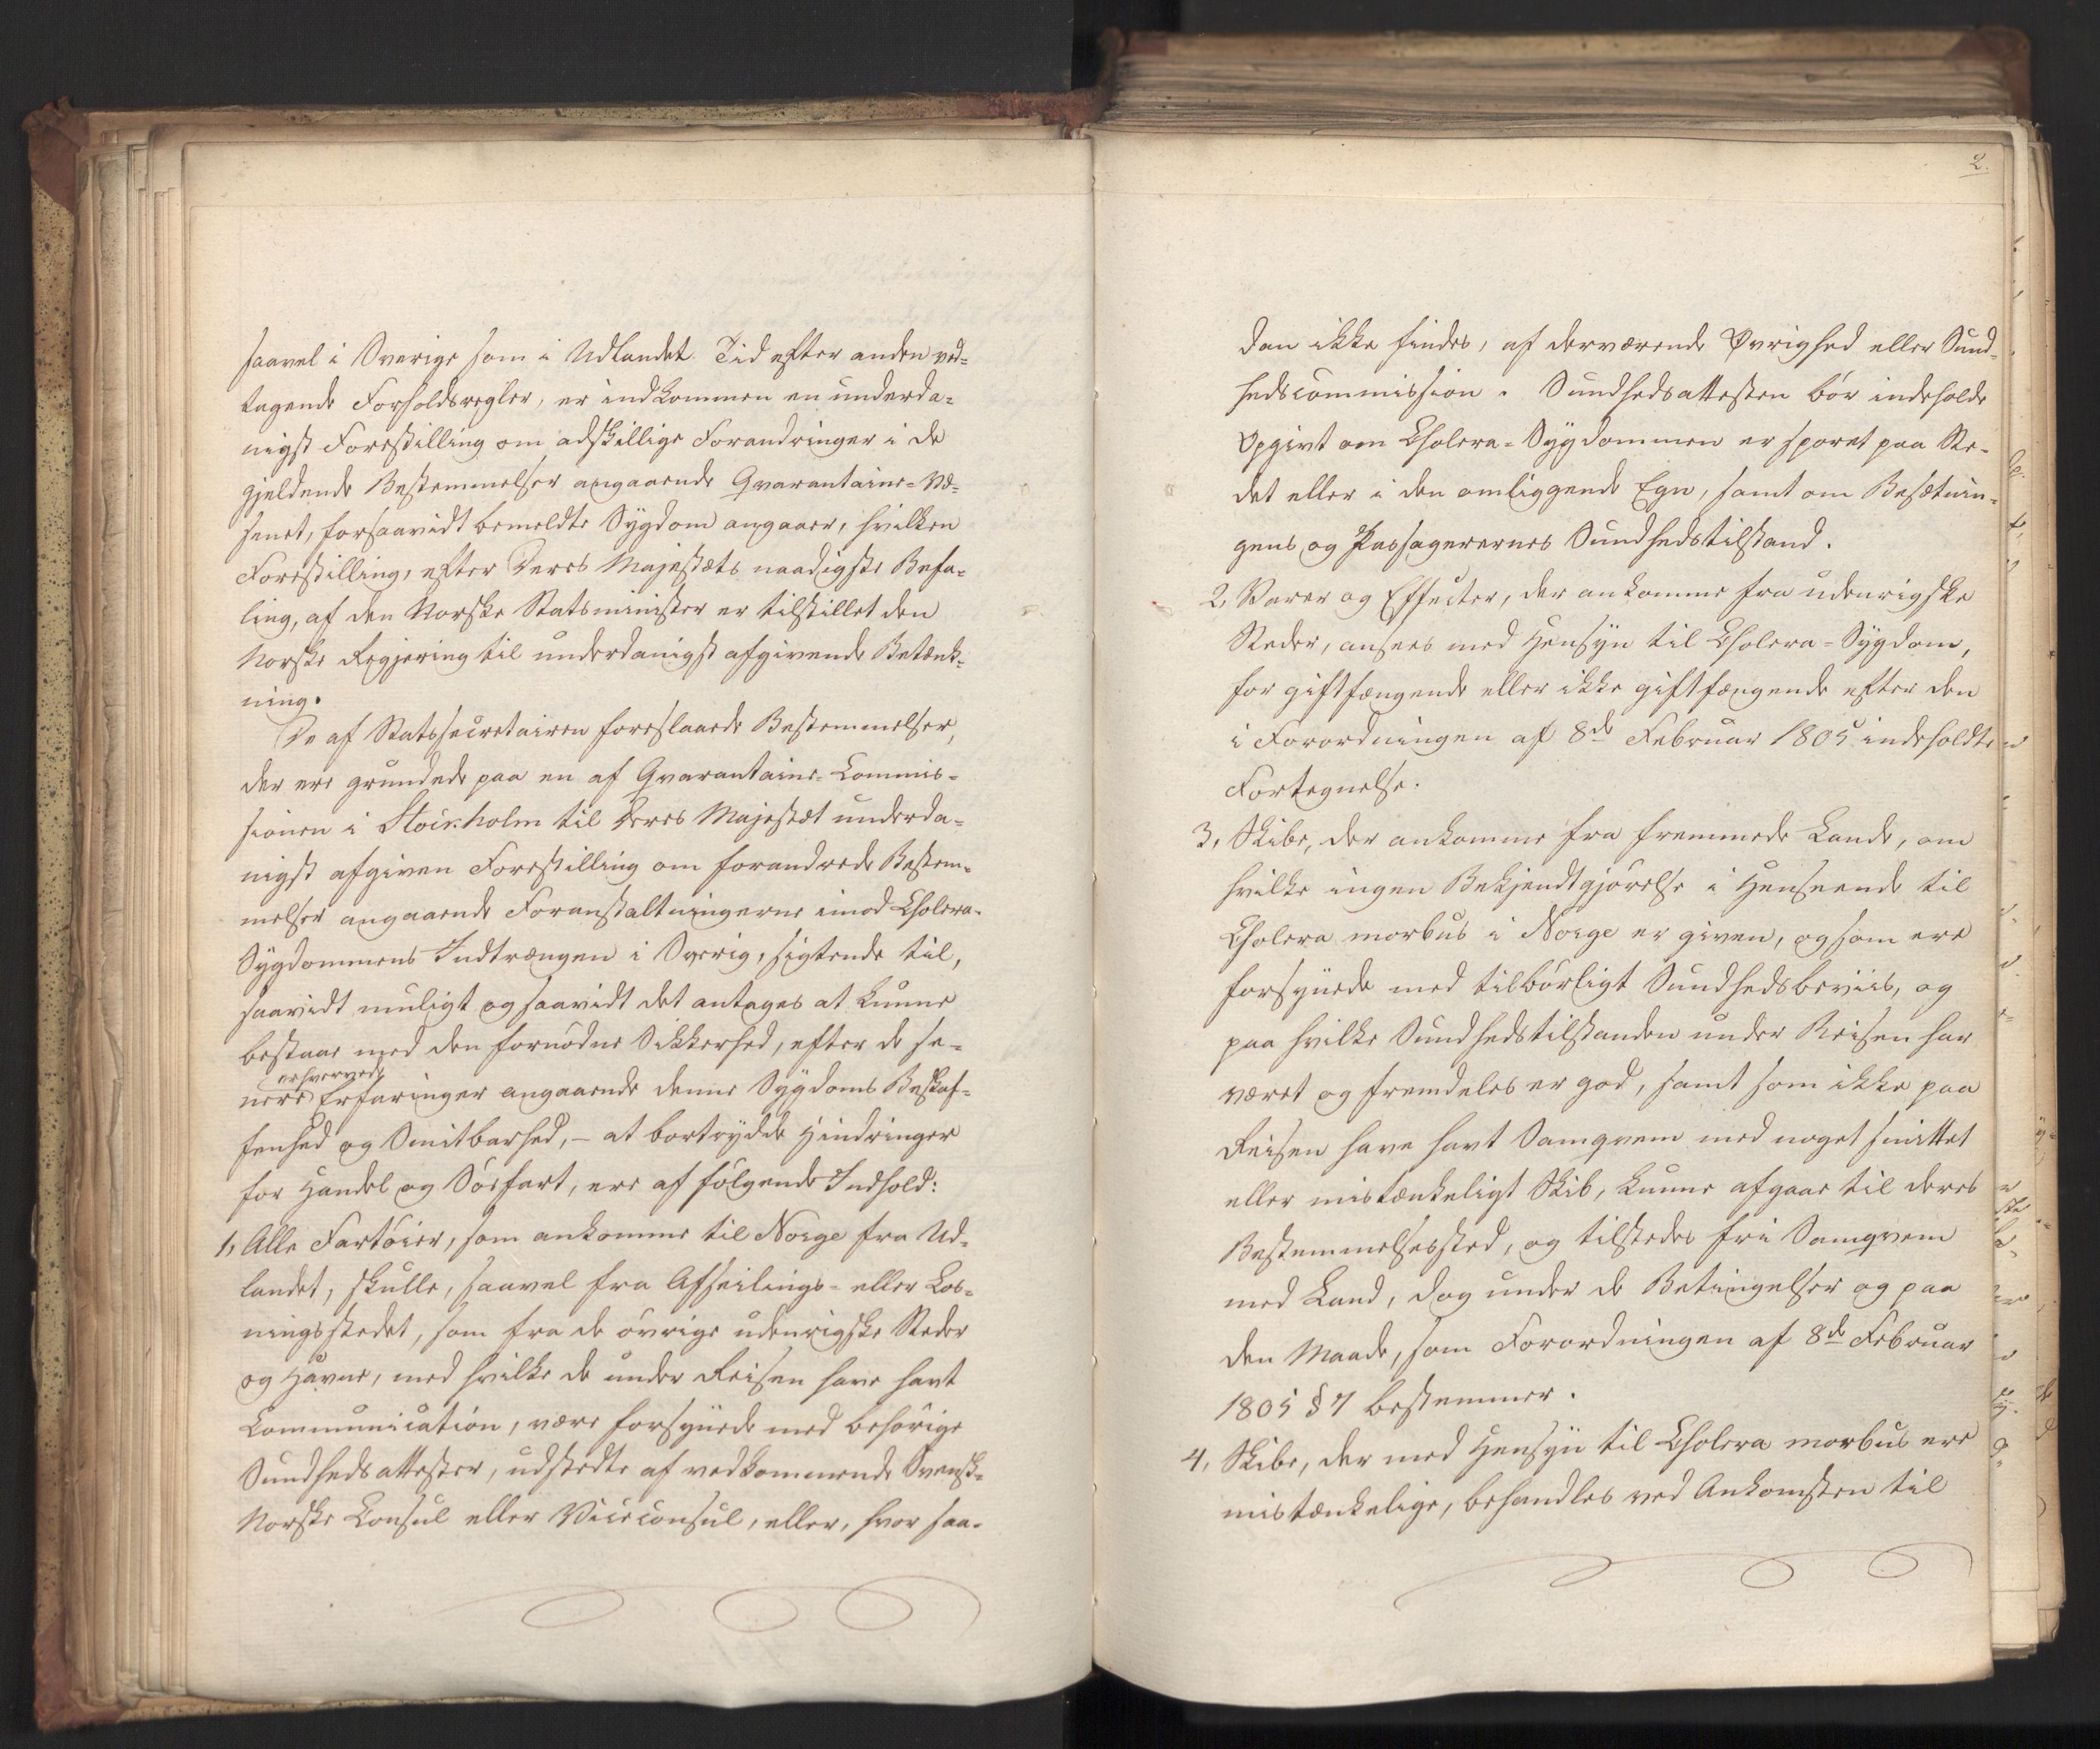 saavel i Sverige som i Udlandet Tid efter anden ved-
tagende Forholdsregler, er indkommen en underda-
nigst Forestilling om adskillige Forandringer i de
gjeldende Bestemmelser angaaende Qvarantaine-Væ-
senet, forsaavidt bemeldte Sygdom angaaer, hvilken
Forestilling, efter Deres Majestæts naadigste Befa-
ling, af den Norske Statsminister er tilstillet den
Norske Regjering til underdanigst afgivende Betænk-
ning.
De af Statssecretairen foreslaaede Bestemmelser,
der ere grundede paa en af Qvarantaine-Commis-
sionen i Stockholm til Deres Majestæt underda-
nigst afgiven Forestilling om forandrede Bestem-
melser angaaende Foranstaltningerne imod Cholera-
Sygdommens Indtrængen i Sverig, sigtende til,
saavidt muligt og saavidt det antages at kunne
bestaae med den fornödne Sikkerhed, efter de se-
erhvervede
nere Erfaringer angaaende denne Sygdoms Beskaf-
fenhed og Smitbarhed, – at bortrydde Hindringer
for Handel og Söefart, ere af fölgende Indhold:
1, Alle Fartöier, som ankomme til Norge fra Ud-
landet, skulle, saavel fra Afseilings- eller Los-
ningsstedet, som fra de övrige udenrigske Steder
og Havne, med hvilke de under Reisen have havt
Communication, være forsynede med behörige
Sundhedsattester, udstedte af vedkommende Svensk-
Norske Consul eller Viceconsul, eller, hvor saa-
2.
dan ikke findes, af derværende Övrighed eller Sund-
hedscommission. Sundhedsattesten bör indeholde
Opgivt om Cholera-Sygdommen er sporet paa Ste-
det eller i den omliggende Egn, samt om Besætnin-
gens og Passagerernes Sundhedstilstand.
2, Varer og Effecter, der ankomme fra udenrigske
Steder, ansees med Hensyn til Cholera-Sygdom,
for giftfængende eller ikke giftfængende efter den
i Forordningen af 8de Februar 1805 indeholdte
Fortegnelse.
3, Skibe, der ankomme fra fremmede Lande, om
hvilke ingen Bekjendtgjörelse i Henseende til
Cholera morbus i Norge er given, og som ere
forsynede med tilbörligt Sundhedsbeviis, og
paa hvilke Sundhedstilstanden under Reisen har
været og fremdeles er god, samt som ikke paa
Reisen have havt Samqvem med noget smittet
eller mistænkeligt Skib, kunne afgaae til deres
Bestemmelsessted, og tilstedes fri Samqvem
med Land, dog under de Betingelser og paa
den Maade, som Forordningen af 8de Februar
1805 § 7 bestemmer.
4, Skibe, der med Hensyn til Cholera morbus ere
mistænkelige, behandles ved Ankomsten til